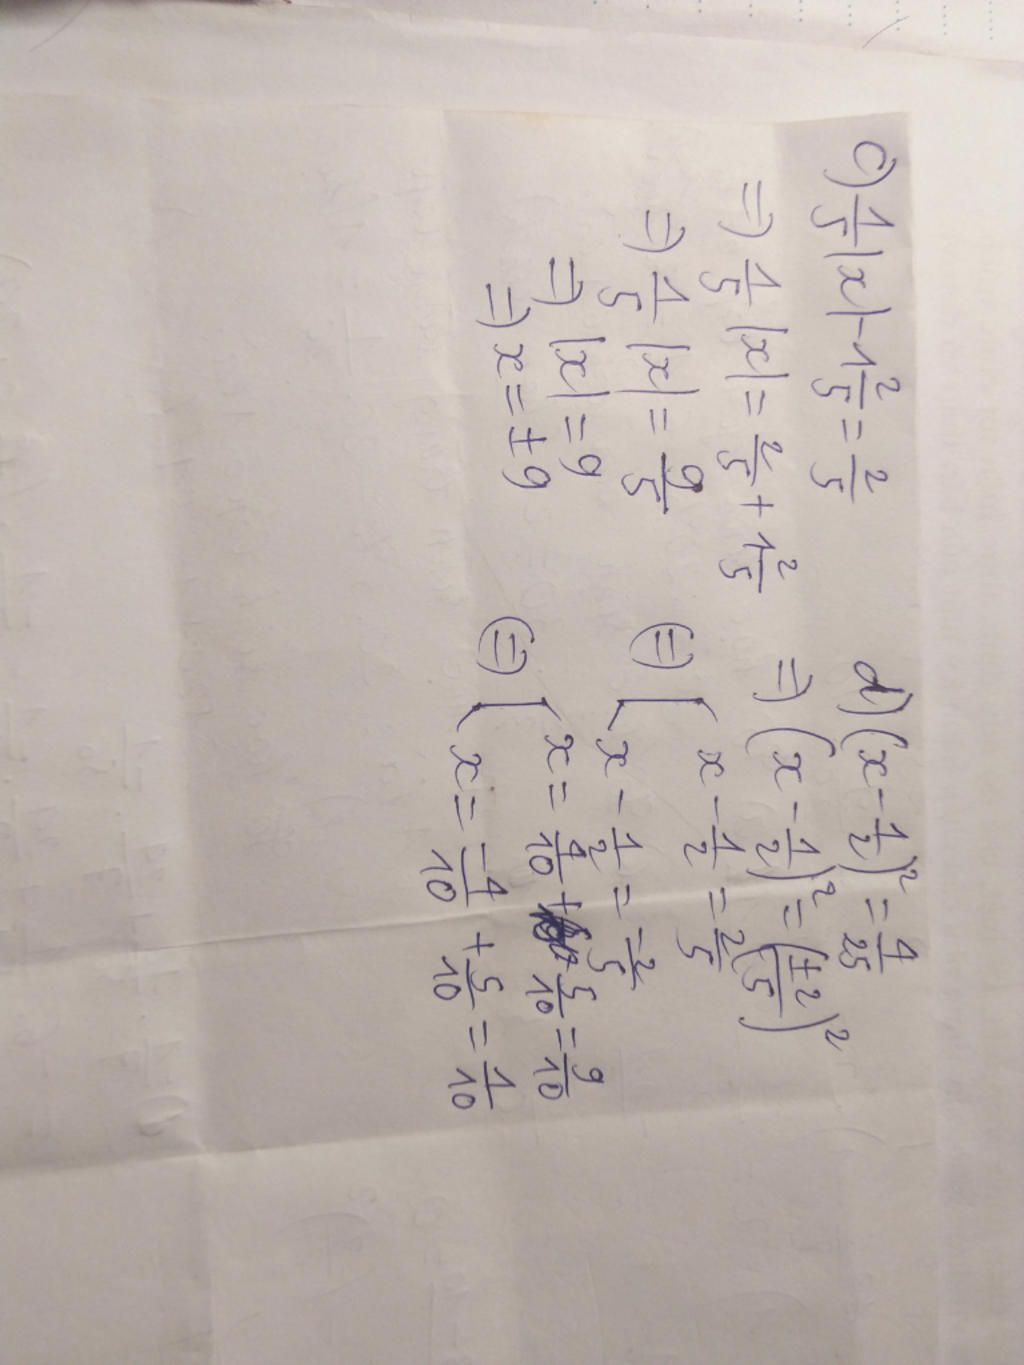 c) 1/5 |x| - 1 2/5 = 2/5
=> 1/5 |x| = 2/5 + 1 2/5
=> 1/5 |x| = 9/5
=> |x| = 9
=> x = ±9
d) (x - 1/2)² = 4/25
=> (x - 1/2)² = (±2/5)²
(=) [ x - 1/2 = 2/5
x - 1/2 = -2/5
(=) [ x = 4/10 + 5/10 = 9/10
x = -4/10 + 5/10 = 1/10